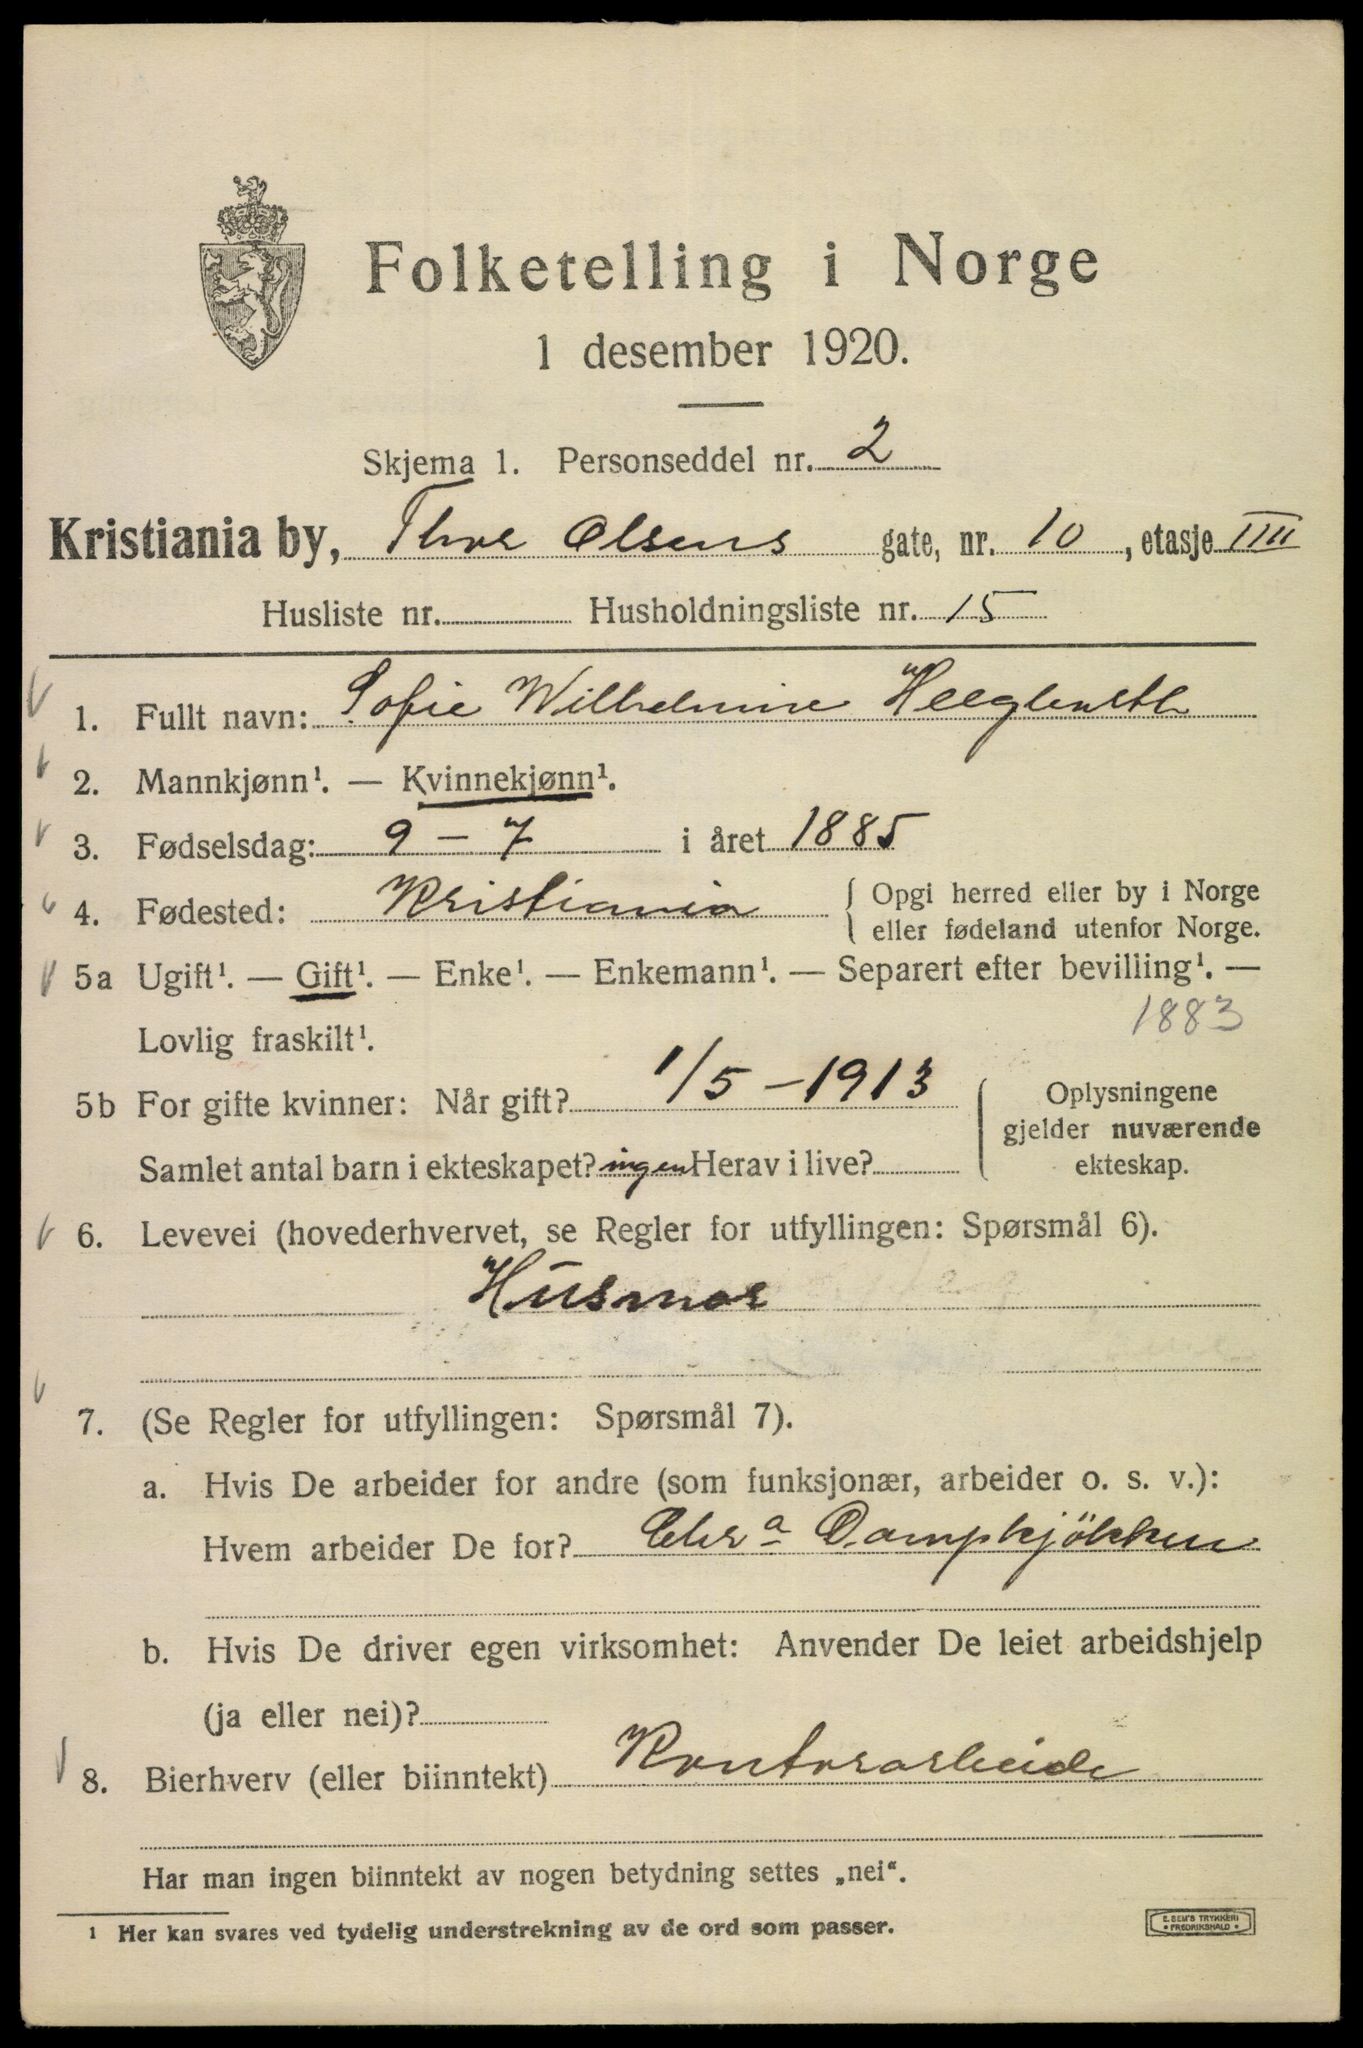 Folketelling i Norge
1 desember 1920.
Skjema 1. Personseddel nr. 2
Kristiania by, Thor Olsens gate, nr. 10, etasje IIII
Husliste nr. Husholdningsliste nr. 15
1. Fullt navn: Sofie Wilhelmine
2. Mannkjønn¹. — Kvinnekjønn¹.
3. Fødselsdag: 9 – 7 i året 1885
4. Fødested: Kristiania { Opgi herred eller by i Norge
eller fødeland utenfor Norge.
5a Ugift¹. — Gift¹. — Enke¹. — Enkemann¹. — Separert efter bevilling¹. —
Lovlig fraskilt¹. 1883
5b For gifte kvinner: Når gift? 1/5 – 1913
Samlet antal barn i ekteskapet? ingen Herav i live?
{ Oplysningene
gjelder nuværende
ekteskap.
6. Levevei (hovederhvervet, se Regler for utfyllingen: Spørsmål 6).
Husmor
7. (Se Regler for utfyllingen: Spørsmål 7).
a. Hvis De arbeider for andre (som funksjonær, arbeider o. s. v.):
Hvem arbeider De for? Chrª Dampkjökken
b. Hvis De driver egen virksomhet: Anvender De leiet arbeidshjelp
(ja eller nei)?
8. Bierhverv (eller biinntekt) Kontorarbeide
Har man ingen biinntekt av nogen betydning settes „nei“.
¹ Her kan svares ved tydelig understrekning av de ord som passer.
E. SEM'S TRYKKERI
• FREDRIKSHALD •